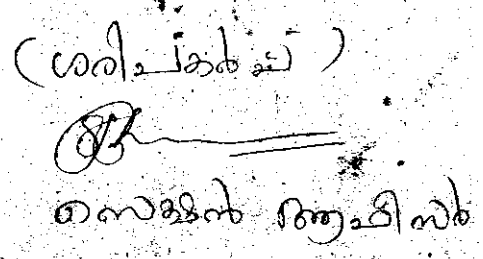 (ശരിപകർപ്പ്)
സെക്ഷൻ ആഫീസർ